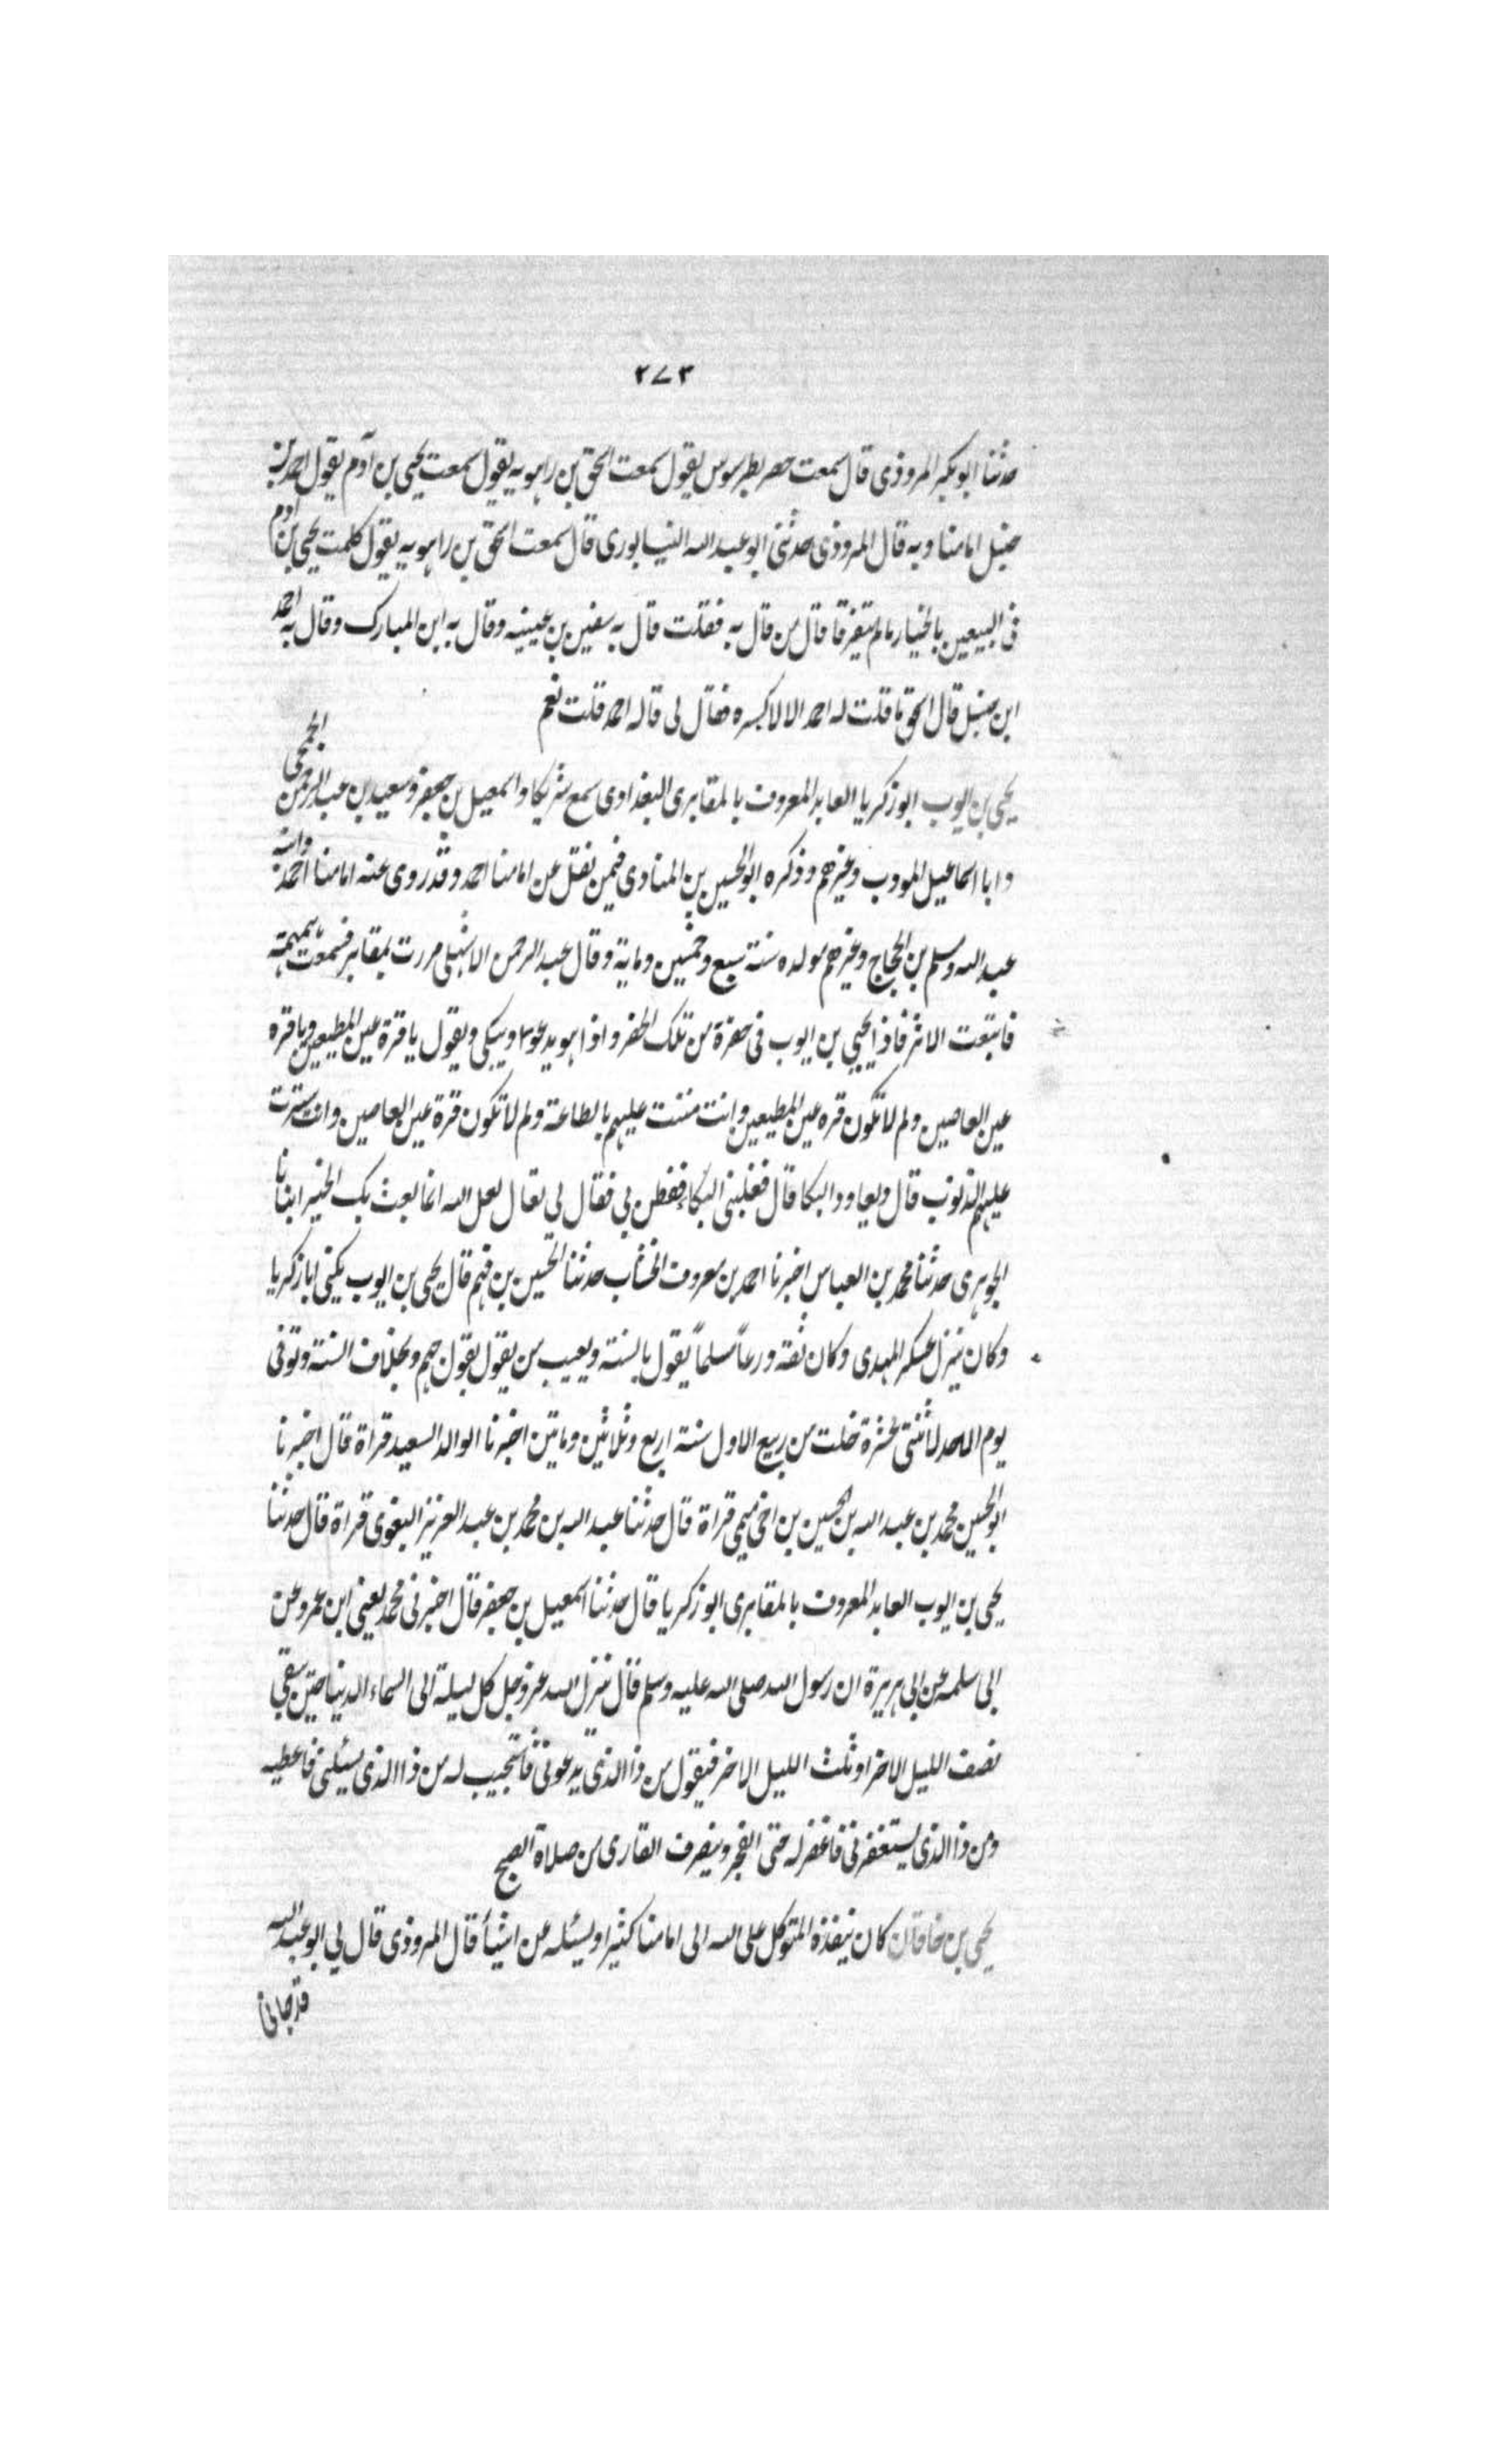 ٢٧٣
حدثنا ابو بكر المروذى قال سمعت بطرسوس يقول سمعت اسحق بن راهويه يقول سمعت يحيى بن آدم يقول احمد بن
حنبل امامنا وبه قال المروذى حدثنى ابو عبد الله النيسابورى قال سمعت اسحق بن راهويه يقول كلمت يحيى بن آدم
فى البيعين بالخيار مالم يتفرقا قال من قال به فقلت قال به سفين بن عيينه وقال به ابن المبارك وقال به احمد
ابن حنبل قال اسحق ما قلت له احمد الا لاكسره فقال لى قاله احمد قلت نعم
يحيى بن ايوب ابو زكريا العابد المعروف بالمقابرى البغدادى سمع شريكا واسمعيل بن جعفر وسعيد بن عبد الرحمن الجمحى
وابا اسماعيل المودب وغيرهم وذكره ابو الحسين بن المنادى فيمن نقل عن امامنا احمد وقد روى عنه امامنا احمد وابنه
عبد الله ومسلم بن الحجاج وغيرهم مولده سنة سبع وخمسين وماية وقال عبد الرحمن مررت بمقابر فسمعت همهمة
فاتبعت الاثر فاذا يحيى بن ايوب فى حفرة من تلك الحفر واذا هو يدعو ويبكى ويقول يا قرة عين المطيعين ويا قره
عين العاصين ولم لا تكون قره عين المطيعين وانت مننت عليهم بالطاعة ولم لا تكون قرة عين العاصين وانت سترت
عليهم الذنوب قال ويعاود البكا قال فغلبنى البكاء ففطن بى فقال لى تعال لعل الله انما بعث بك لخير انبانا
الجوهرى حدثنا محمد بن العباس اخبرنا احمد بن معروف الخشاب حدثنا الحسين بن فهم قال يحيى بن ايوب يكنى ابا زكريا
وكان ينزل عسكر المهدى وكان ثقة ورعاً مسلماً يقول بالسنة ويعيب من يقول بقول جهم وبخلاف السنة وتوفى
يوم الاحد لاثنتى عشرة خلت من ربيع الاول سنة اربع وثلاثين وماتين اخبرنا الوالد السعيد قراة قال اخبرنا
ابو الحسين محمد بن عبد الله بن الحسين بن اخى ميمى قراة قال حدثنا عبد الله بن محمد بن عبد العزيز البغوى قراة قال حدثنا
يحيى بن ايوب العابد المعروف بالمقابرى ابو زكريا قال حدثنا اسمعيل بن جعفر قال اخبرنى محمد يعنى ابن عمرو عن
ابى سلمه عن ابى هريرة ان رسول الله صلى الله عليه وسلم قال ينزل الله عز وجل كل ليلة الى السماء الدنيا حين يبقى
نصف الليل الاخر او ثلث الليل الاخر فيقول من ذا الذى يدعونى فاستجيب له من ذا الذى يسئلنى فاعطيه
ومن ذا الذى يستغفرنى فاغفر له حتى الفجر وينصرف القارى من صلاة الصبح
يحيى بن خاقان كان ينفذه المتوكل على الله الى امامنا كثيرا ويسئله عن اشيأ قال المروذى قال لى ابو عبد الله
قد جانى